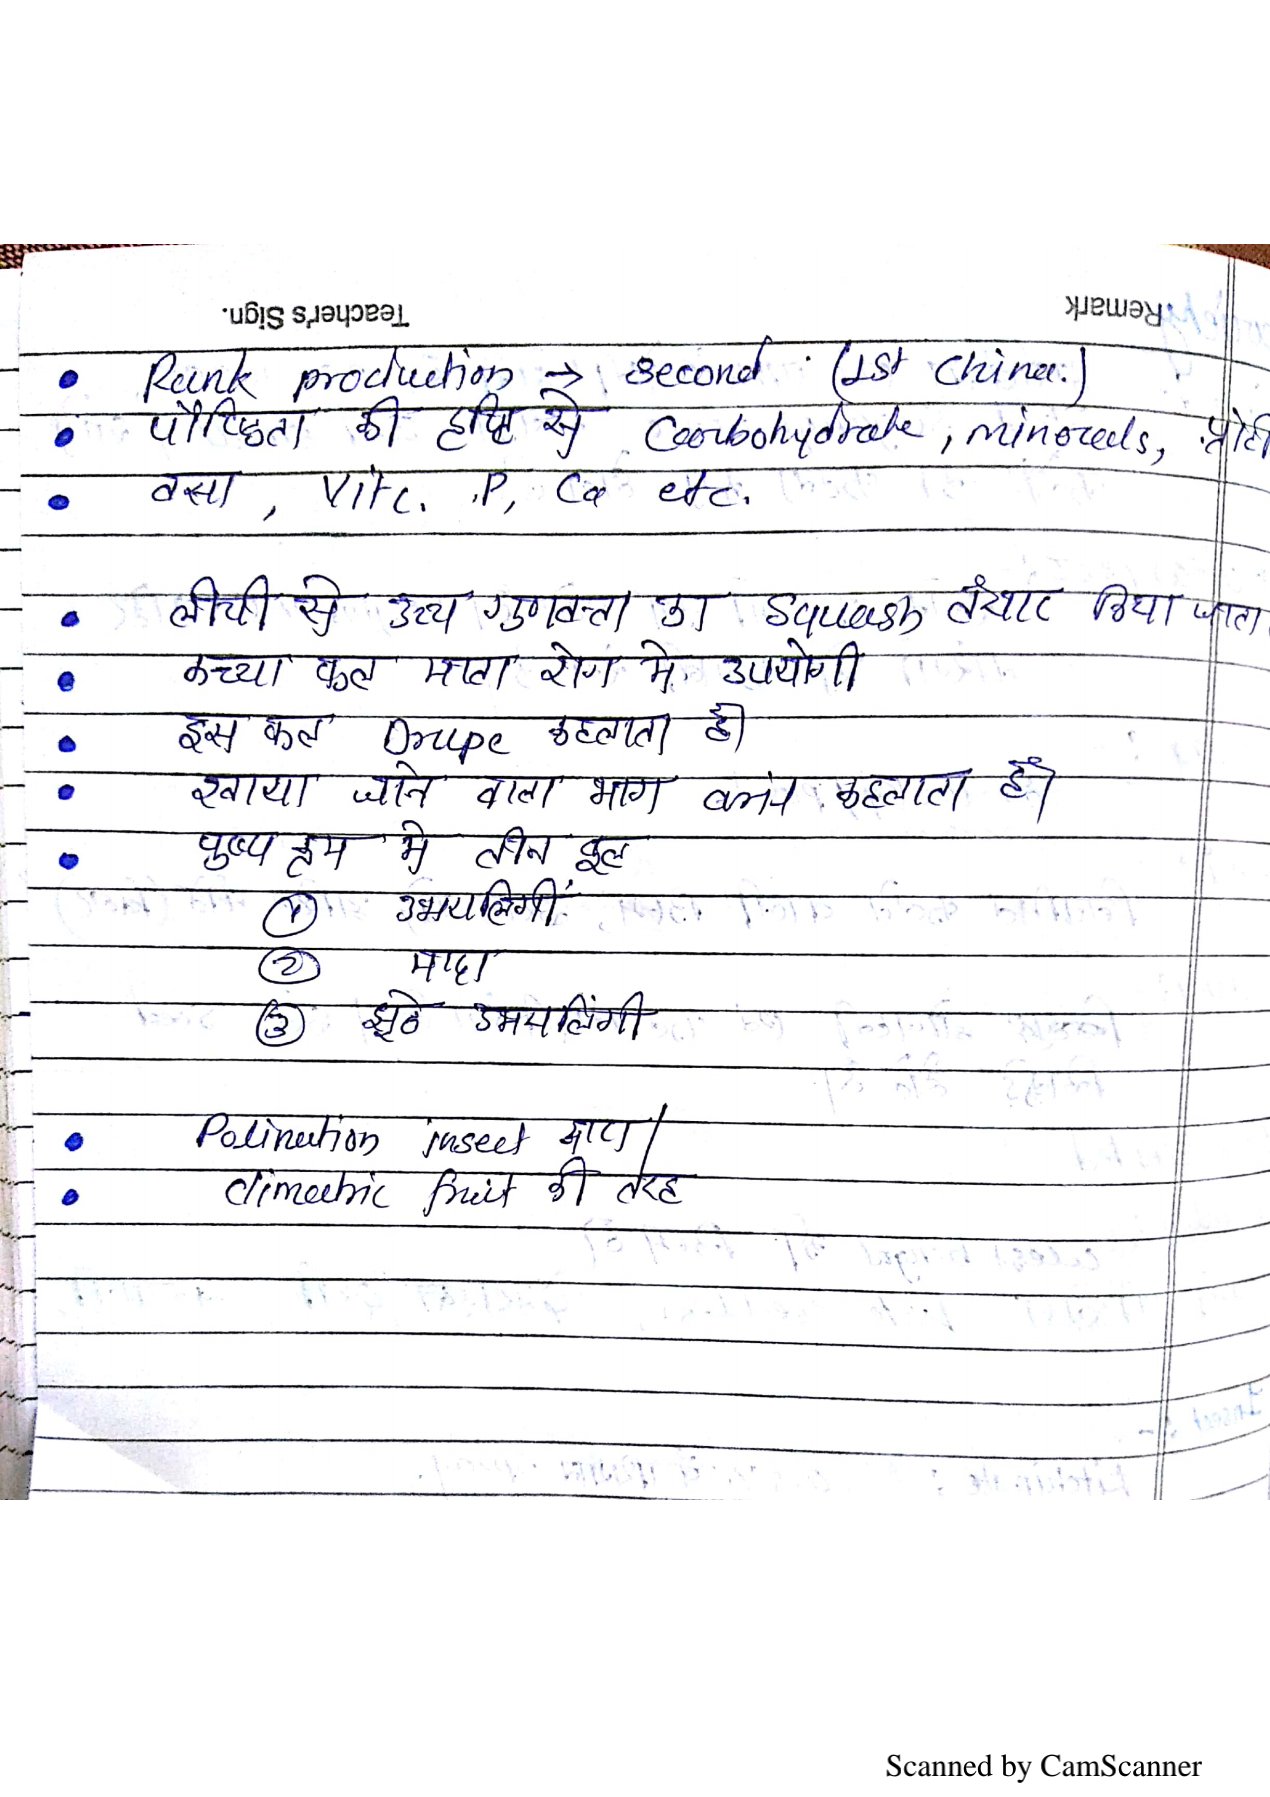 Teacher's Sign.
Remark
• Rank production → second. (1st China.)
• पौष्टिकता की दृष्टि से Carbohydrate, minerals, प्रोटी
• वसा, Vit c. P, Ca etc.
• लीची से उच्च गुणवत्ता का Squash तैयार किया जाता
• कच्चा फल माता रोग मे उपयोगी
• इस फल Drupe कहलाता है।
• खाया जाने वाला भाग कहलाता है।
• पुष्प क्रम मे तीन फूल
① उभयलिंगी
② मादा
③ झूठे उभयलिंगी
• Polination insect द्वारा
• climatric fruit की तरह
Scanned by CamScanner